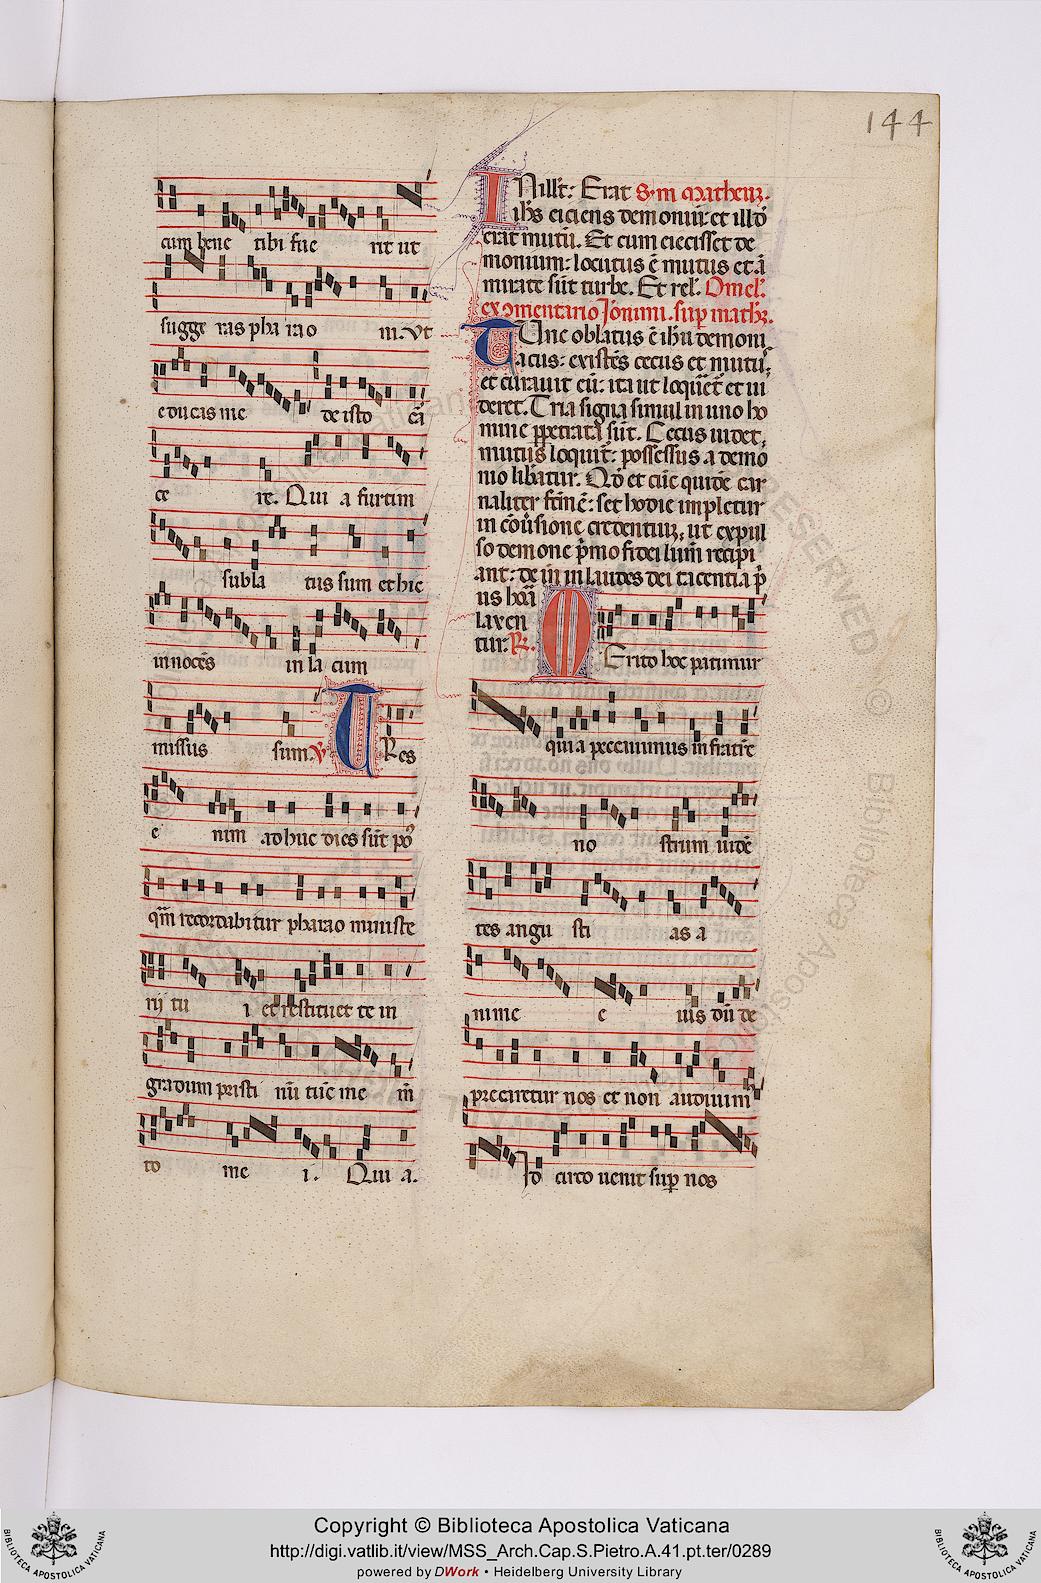 144
cum bene tibi fue rit ut
sugge ras pha rao ni. Vt
educas me de isto
ce re. Qui a furtim
subla tus sum et hic
innocẽs in la cum
missus sum. V Res
e nim adhuc dies sũt
recordabitur pharao ministe
rij tu i et restituet te in
gradum pristi nũ tũc me
to me i. Qui a.
IN illt̃: Erat
ih̃s eiciens demoniũ: et illđ
erat mutũ. Et cum eiecisset de
monium: locutus ẽ mutus et ãmi
mirate sũt turbe. Et rel̃. Omel̃.
TUnc oblatus ẽ ih̃u demoni
acus: existẽs cecus et mutus;
et curauit eũ: ita ut loqueret̃ et ui
deret. Tria signa simul in uno ho
mine ꝑpetrata sũt. Cecus uidet,
mutus loquit̃: possessus a demo
nio libatur. Qđ et tũc quidẽ car
naliter fcm̃ ẽ: set hodie impletur
in cõuersione credentiũ, ut expul
so demone p̃mo fidei lum̃ recipi
ant: deĩn in laudes dei tacentia p̃
us hora
laxen
tur. R. MErito hec patimur
quia peccauimus in fratrẽ
no strum uidẽ
tes angu sti as a
nime e ius dũ de
precaretur nos et non audiuim
Iđ circo uenit suꝑ nos
Copyright © Biblioteca Apostolica Vaticana
http://digi.vatlib.it/view/MSS_Arch.Cap.S.Pietro.A.41.pt.ter/0289
powered by DWork • Heidelberg University Library
BIBLIOTECA APOSTOLICA VATICANA
BIBLIOTECA APOSTOLICA VATICANA